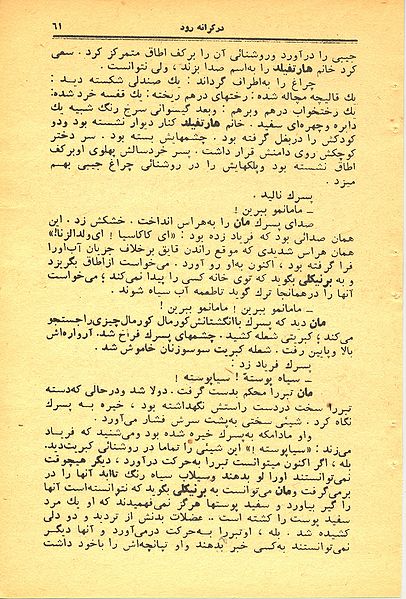 درکرانه رود ۶۱
جیبی را درآورد وروشنائی آن را برکف اطاق متمرکز کرد . سعی
کرد خانم هارتفیلد را به‌اسم صدا بزند ، ولی نتوانست .
چراغ را به‌اطراف گرداند : یك صندلی شکسته دید :
یك قالیچه مچاله شده : رختهای درهم ریخته : یك قفسه خردشده:
یك رختخواب درهم وبرهم : وبعد گیسوانی سرخ رنگ شبیه یك
دایره وچهره‌ای سفید . خانم هارتفیلد کنار دیوار نشسته بود ودو
کودکش را دربغل گرفته بود . چشمهایش بسته بود . سر دختر
کوچکش روی دامنش قرار داشت . پسر خردسالش پهلوی اوبرکف
اطاق نشسته بود وپلکهایش را در روشنائی چراغ جیبی بهم
میزد .
پسرك نالید .
ــ مامانمو ببرین !
صدای پسرك مان را به‌هراس انداخت . خشکش زد . این
همان صدائی بود که فریاد زده بود : «ای کاکاسیا ! ای‌ولدالزنا!»
همان هراس شدیدی که موقع راندن قایق برخلاف جریان آب‌اورا
فرا گرفته بود ، اکنون به‌او رو آورد . می‌خواست ازاطاق بگریزد
و به برنیکلی بگوید که توی خانه کسی را پیدا نمی‌کند ؛ می‌خواست
آنها را درهمانجا ترك گوید تاطعمه آب سیاه شوند .
ــ مامانمو ببرین ! مامانمو ببرین !
مان دید که پسرك باانگشتانش‌کورمال کورمال‌چیزی‌راجستجو
می‌کند ؛ کبریتی شعله کشید . چشمهای پسرك فراخ شد. آرواره‌اش
بالا وپایین رفت . شعله کبریت سوسوزنان خاموش شد .
پسرك فریاد زد :
ــ سیاه پوسته ! سیاپوسته !
مان تبررا محکم بدست گرفت . دولا شد ودرحالی که‌دسته
تبررا سخت دردست راستش نگهداشته بود ، خیره به پسرك
نگاه کرد . شیئی سختی به‌پشت سرش فشار می‌آورد .
واو مادامکه به‌پسرك خیره شده بود ومی‌شنید که فریاد
می‌زند : «سیاپوسته !» این شیئی را تماما در روشنائی کبریت‌دید.
بله ، اگر اکنون میتوانست تبررا به‌حرکت درآورد ، دیگر هیچوقت
نمی‌توانستند اورا لو بدهند وسیلاب سیاه رنگ تاابد آنها را در
برمی‌گرفت ومان می‌توانست به برنیکلی بگوید که نتوانسته‌است آنها
را گیر بیاورد و سفید پوستها هرگز نمی‌فهمیدند که او یك مرد
سفید پوست را کشته است .. عضلات بدنش از تردید و دو دلی
کشیده شد . بله ، اوتبررا به‌حرکت درمی‌آورد و آنها دیگر
نمی‌توانستند به‌کسی خبر بدهند واو تپانچه‌اش را باخود داشت